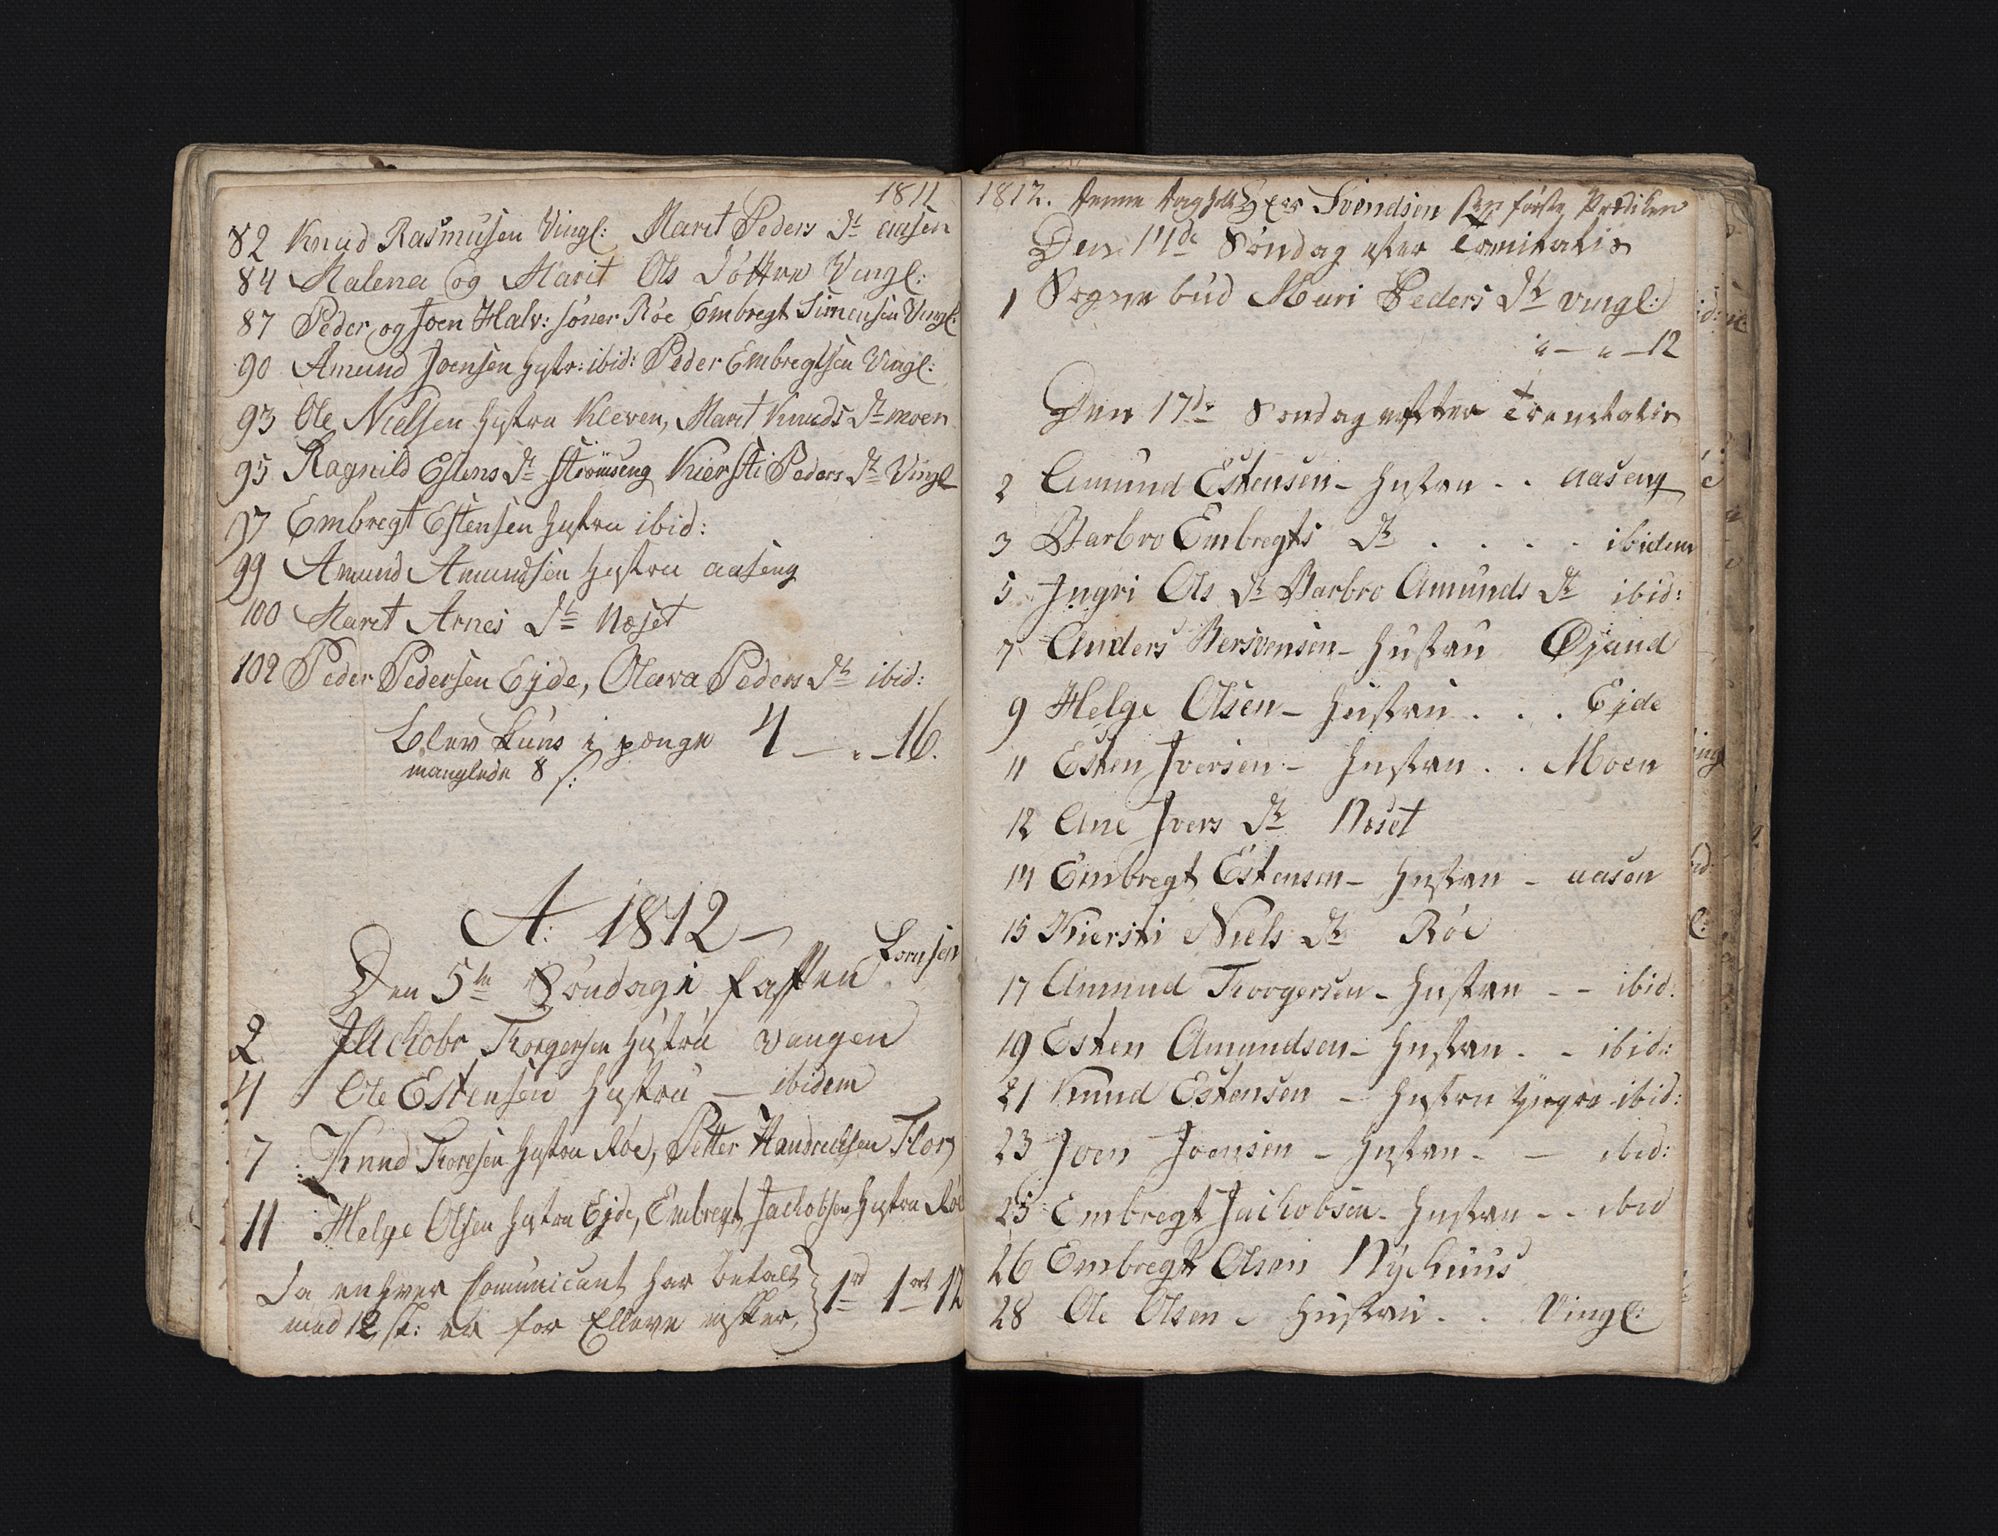 1811
82 Knud Rasmusen Vingl: Marit Peders Dt aasen
84 Malena og Marit Ols Døttre Vingl:
87 Peder og Joen Halv: søner Røe Embregt Simensen Vingl:
90 Amund Joensen Hustr: ibid: Peder Embregtsen Vingl:
93 Ole Nielsen Hustru Kleven, Marit Knuds Dt moen
95 Ragnild Estens Dt Strømseng Kiersti Peders Dt Vingl
97 Embregt Estensen Hustru ibid:
99 Amund Amundsen Hustru aaseng
100 Marit Arnes Dt Næset
102 Peder Pedersen Ejde, Olava Peders Dt ibid:
blev kuns i penge 4 — „ — 16.
manglede 8 s:
A: 1812 —
Den 5te Søndag i Fasten
2 Jachob Thorgersen Hustru Vangen
4 Ole Estensen Hustru — ibidem
7 Knud Thoresen Hustru Røe, Petter Handrechsen Flor
11 Helge Olsen Hustru Ejde, Embregt Jachobsen Hustru Røe
Da enhver Comunicant har betalt
med 12 sk: er for Elleve 1rd 1ort 12
1812. Denne Dag holt Hr Svendsen sin første Prædiken
Den 14de Søndag efter Trenitatis
1 Sognebud Mari Peders Dt Vingl:
" — " — 12
Den 17de Søndag efter Trenitatis
2 Amund Estensen – Hustru – . aaseng
3 Barbro Embregts Dt . . . . ibidem
5 Ingri Ols Dt Barbro Amunds Dt ibid:
7 Anders Bersvensen – Hustru Øjand
9 Helge Olsen – Hustru . . . Ejde
11 Esten Iversen – Hustru . . Moen
12 Ane Ivers Dt Næset
14 Embregt Estensen – Hustru – aasen
15 Kiersti Niels Dt Røe
17 Amund Thorgersen – Hustru – – ibid.
19 Esten Amundsen – Hustru . – ibid:
21 Knud Estensen – Hustru yngre ibid:
23 Joen Joensen – Hustru – — ibid:
25 Embregt Jachobsen – Hustru – – ibid
26 Embregt Olsen Nychuus
28 Ole Olsen – Hustru . . Vingl: